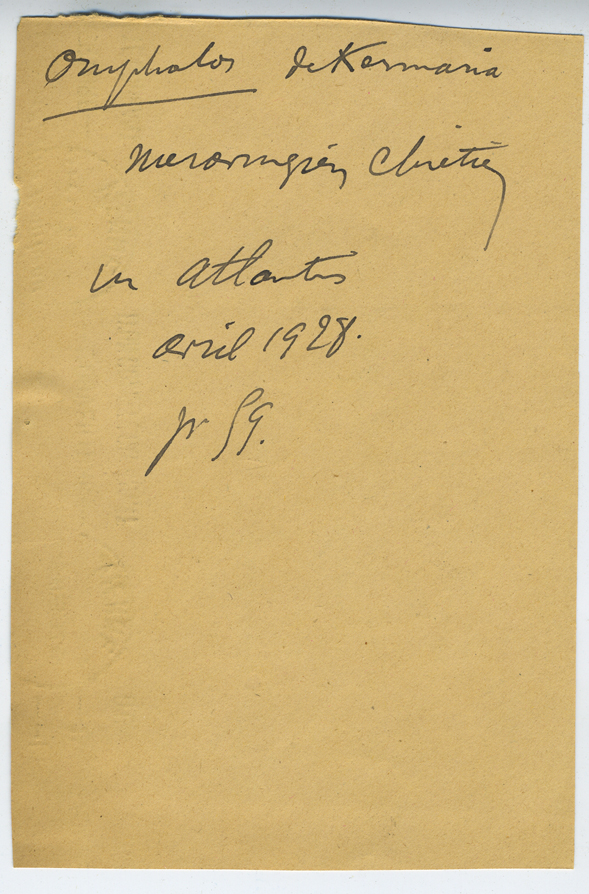 Omphalos de Kermaria
merovingien Chrétien
in Atlantis
avril 1928.
p 59.